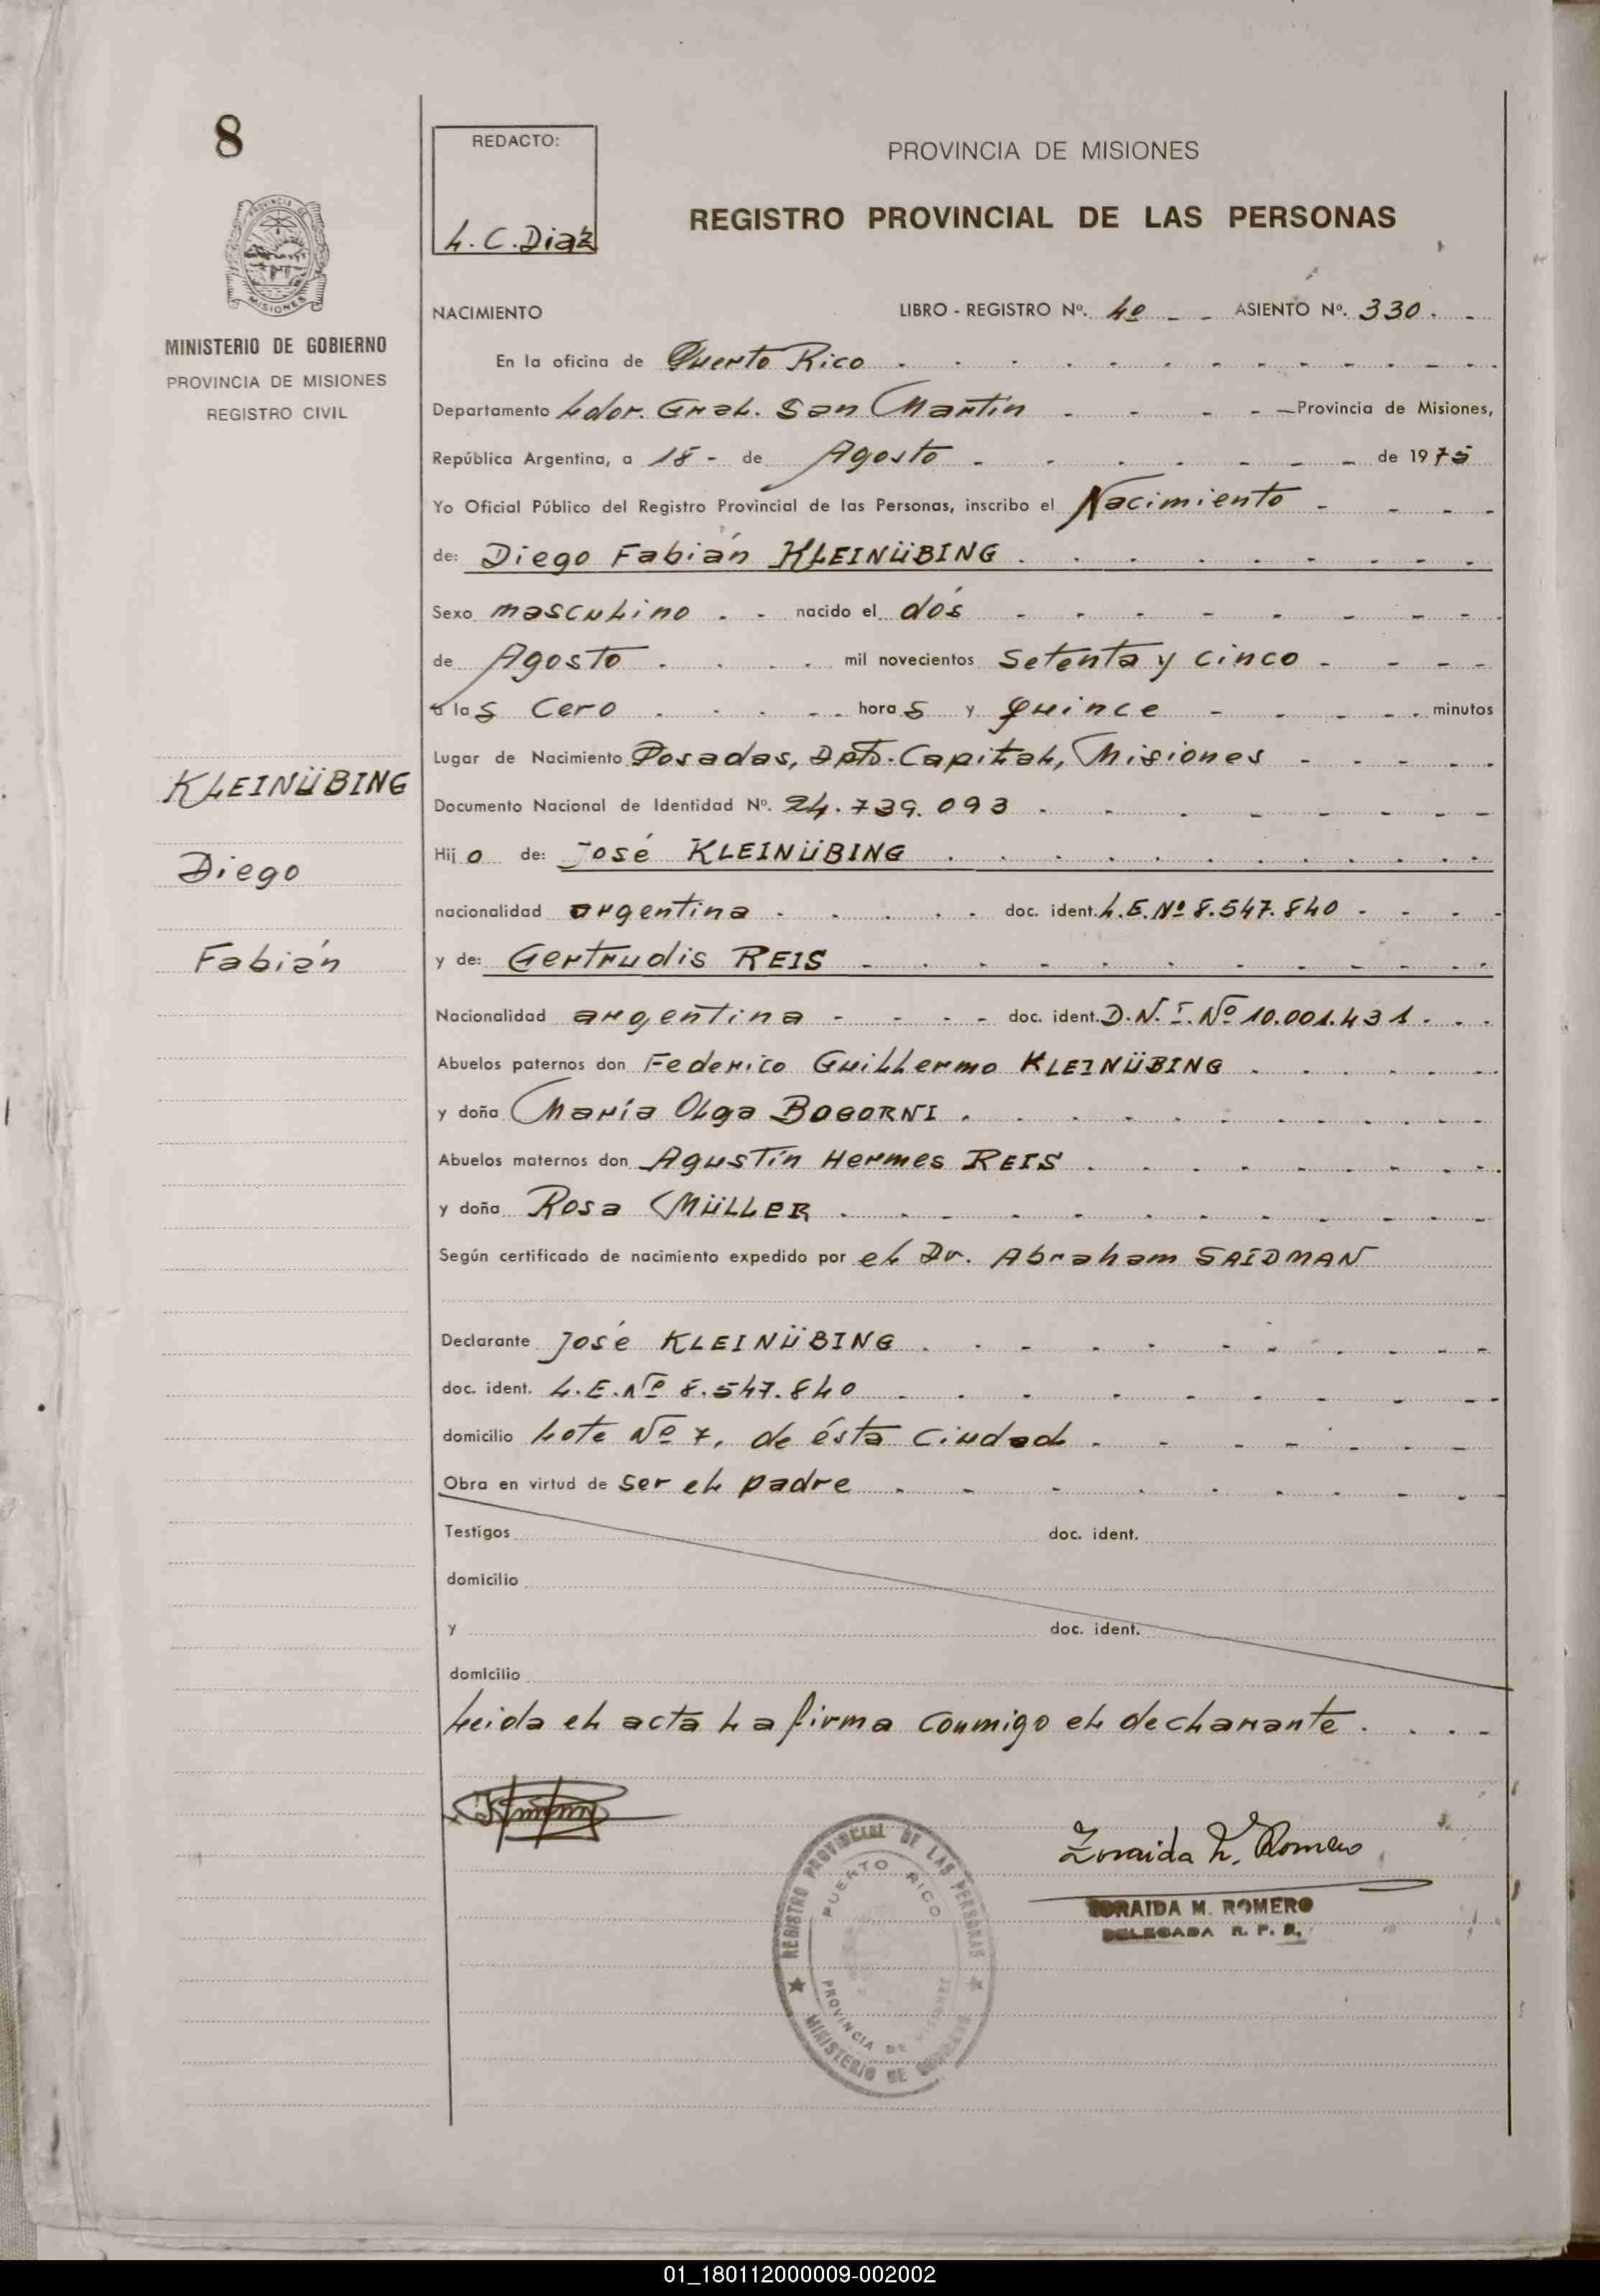 8
REDACTO:
L. C. Diaz
PROVINCIA DE MISIONES
REGISTRO PROVINCIAL DE LAS PERSONAS
PROVINCIA DE
MISIONES
MINISTERIO DE GOBIERNO
PROVINCIA DE MISIONES
REGISTRO CIVIL
NACIMIENTO LIBRO - REGISTRO Nº. 4º - - ASIENTO Nº. 330. -
En la oficina de Puerto Rico
Departamento Ldor. Gral. San Martín - - - - Provincia de Misiones,
República Argentina, a 18 - de Agosto - de 1975
Yo Oficial Público del Registro Provincial de las Personas, inscribo el Nacimiento
de: Diego Fabián KLEINÜBING
Sexo masculino nacido el dós
de Agosto mil novecientos setenta y cinco
a las Cero horas y quince minutos
Lugar de Nacimiento Posadas, Dpto. Capital, Misiones
Documento Nacional de Identidad Nº. 24.739.093
Hijo de: José KLEINÜBING
nacionalidad argentina doc. ident. L.E. Nº 8.547.840
y de: Gertrudis REIS
Nacionalidad argentina doc. ident. D.N.I. Nº 10.001.431
Abuelos paternos don Federico Guillermo KLEINÜBING
y doña María Olga BOGORNI
Abuelos maternos don Agustín Hermes REIS
y doña Rosa MÜLLER
Según certificado de nacimiento expedido por el Dr. Abraham SAIDMAN
Declarante José KLEINÜBING
doc. ident. L.E. Nº 8.547.840
domicilio Lote Nº 7, de ésta Ciudad
Obra en virtud de ser el padre
Testigos doc. ident.
domicilio
y doc. ident.
domicilio
Leida el acta la firma conmigo el declarante
KLEINÜBING
Diego
Fabián
REGISTRO PROVINCIAL DE LAS PERSONAS
PUERTO RICO
PROVINCIA DE MISIONES
MINISTERIO DE
Zoraida M. Romero
ZORAIDA M. ROMERO
DELEGADA R. P. P.
01_180112000009-002002